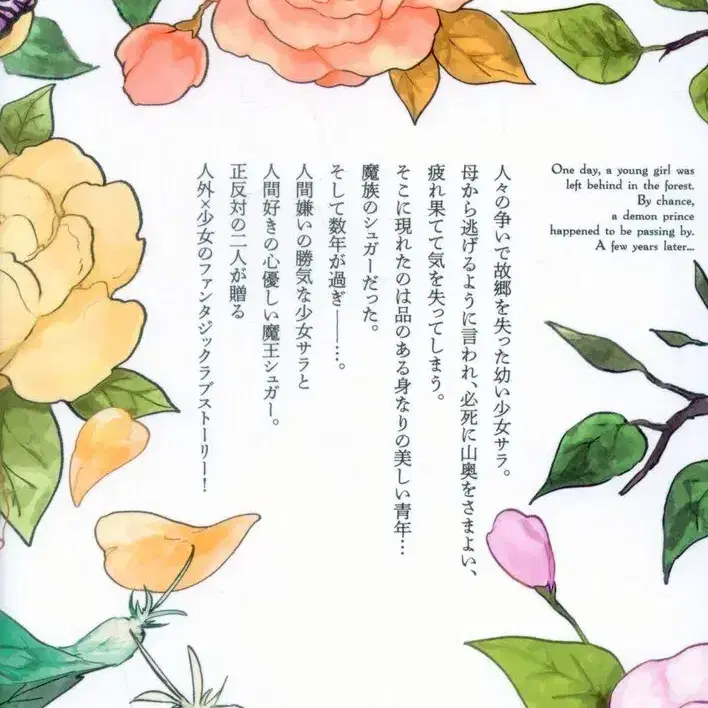 One day, a young girl was
left behind in the forest.
By chance,
a demon prince
happened to be passing by.
A few years later...
人々の争いで故郷を失った幼い少女サラ。
母から逃げるように言われ、必死に山奥をさまよい、
疲れ果てて気を失ってしまう。
そこに現れたのは品のある身なりの美しい青年…
魔族のシュガーだった。
そして数年が過ぎ――…。
人間嫌いの勝気な少女サラと
人間好きの心優しい魔王シュガー。
正反対の二人が贈る
人外×少女のファンタジックラブストーリー!